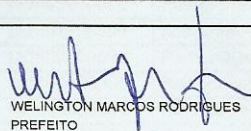 WELINGTON MARCOS RODRIGUES
PREFEITO